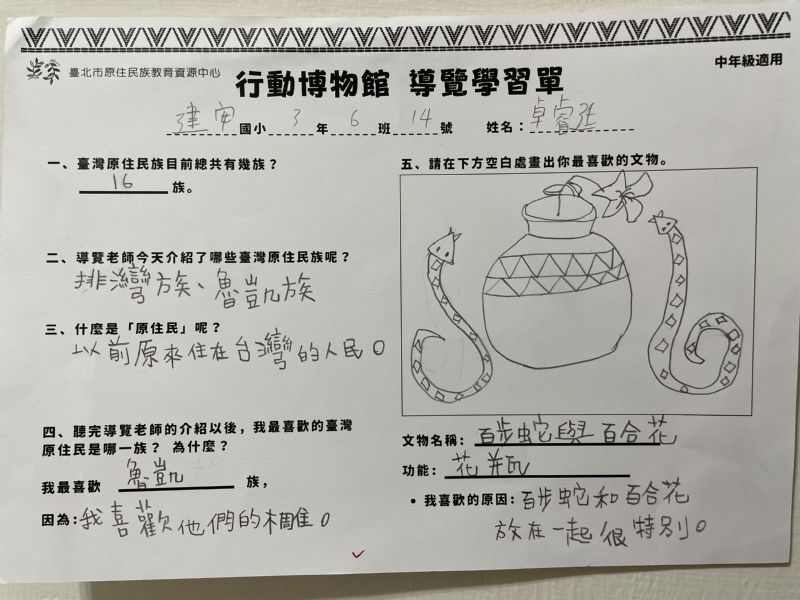 臺北市原住民族教育資源中心
中年級適用
行動博物館 導覽學習單
建安國小 3 年 6 班 14 號 姓名：卓睿
一、臺灣原住民族目前總共有幾族？
16 族。
二、導覽老師今天介紹了哪些臺灣原住民族呢？
排灣族、魯凱族
三、什麼是「原住民」呢？
以前原來住在台灣的人民。
四、聽完導覽老師的介紹以後，我最喜歡的臺灣
原住民是哪一族？ 為什麼？
我最喜歡 魯凱 族，
因為：我喜歡他們的木雕。
五、請在下方空白處畫出你最喜歡的文物。
文物名稱：百步蛇與百合花
功能：花瓶
• 我喜歡的原因：百步蛇和百合花
放在一起很特別。